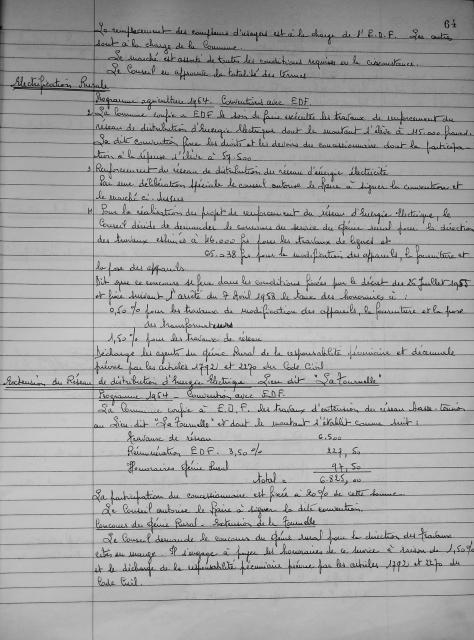 64
Le remplacement des compteurs d'usagers est à la charge de l'E.D.F. Les autres
sont à la charge de la Commune.
Le marché est assorti de toutes les conditions requises en la circonstance.
Le Conseil en approuve la totalité des termes
Electrification Rurale
Programme agriculture 1964. Conventions avec EDF.
La Commune confie à EDF le soin de faire exécuter les travaux de renforcement du
réseau de distribution d'Energie Electrique dont le montant s'élève à 115.000 francs.
La dite convention fixe les droits et les devoirs du concessionnaire dont la participa-
tion à la dépense s'élève à 57.500
Renforcement du réseau de distribution du réseau d'énergie électricité
Par une délibération spéciale le conseil autorise le Maire à signer la convention et
le marché ci-dessus
Pour la réalisation du projet de renforcement du réseau d'Energie Electrique, le
Conseil décide de demander le concours du service du Génie rural pour la direction
des travaux estimés à 46.000 frs pour les travaux de lignes et
05.038 frs pour la modification des appareils, la fourniture et
la pose des appareils
Dit que ce concours se fera dans les conditions fixées par le décret des 26 Juillet 1955
et fixe suivant l'arrêté du 7 Avril 1958 le taux des honoraires à :
0,50% pour les travaux de modification des appareils, la fourniture et la pose
des transformateurs
1,50% pour les travaux de réseau
Décharge les agents du Génie Rural de la responsabilité pécuniaire et décennale
prévue par les articles 1792 et 2270 du Code Civil
Extension du Réseau de distribution d'Energie Electrique. Lieu dit "La Tournelle"
Programme 1964 - Convention avec EDF.
La Commune confie à E.D.F. les travaux d'extension du réseau basse-tension
au Lieu dit "La Tournelle" et dont le montant s'établit comme suit :
Travaux de réseau 6.500
Rémunération E.D.F. 3,50% 227,50
Honoraires Génie Rural 97,50
Total = 6.825,00
La participation du concessionnaire est fixée à 20% de cette somme.
Le Conseil autorise le Maire à signer la dite convention.
Concours du Génie Rural - Extension de la Tournelle
Le Conseil demande le concours du Génie rural pour la direction des travaux
cités en marge. Il s'engage à payer les honoraires de ce service à raison de 1,50%
et le décharge de la responsabilité pécuniaire prévue par les articles 1792 et 2270 du
Code Civil.